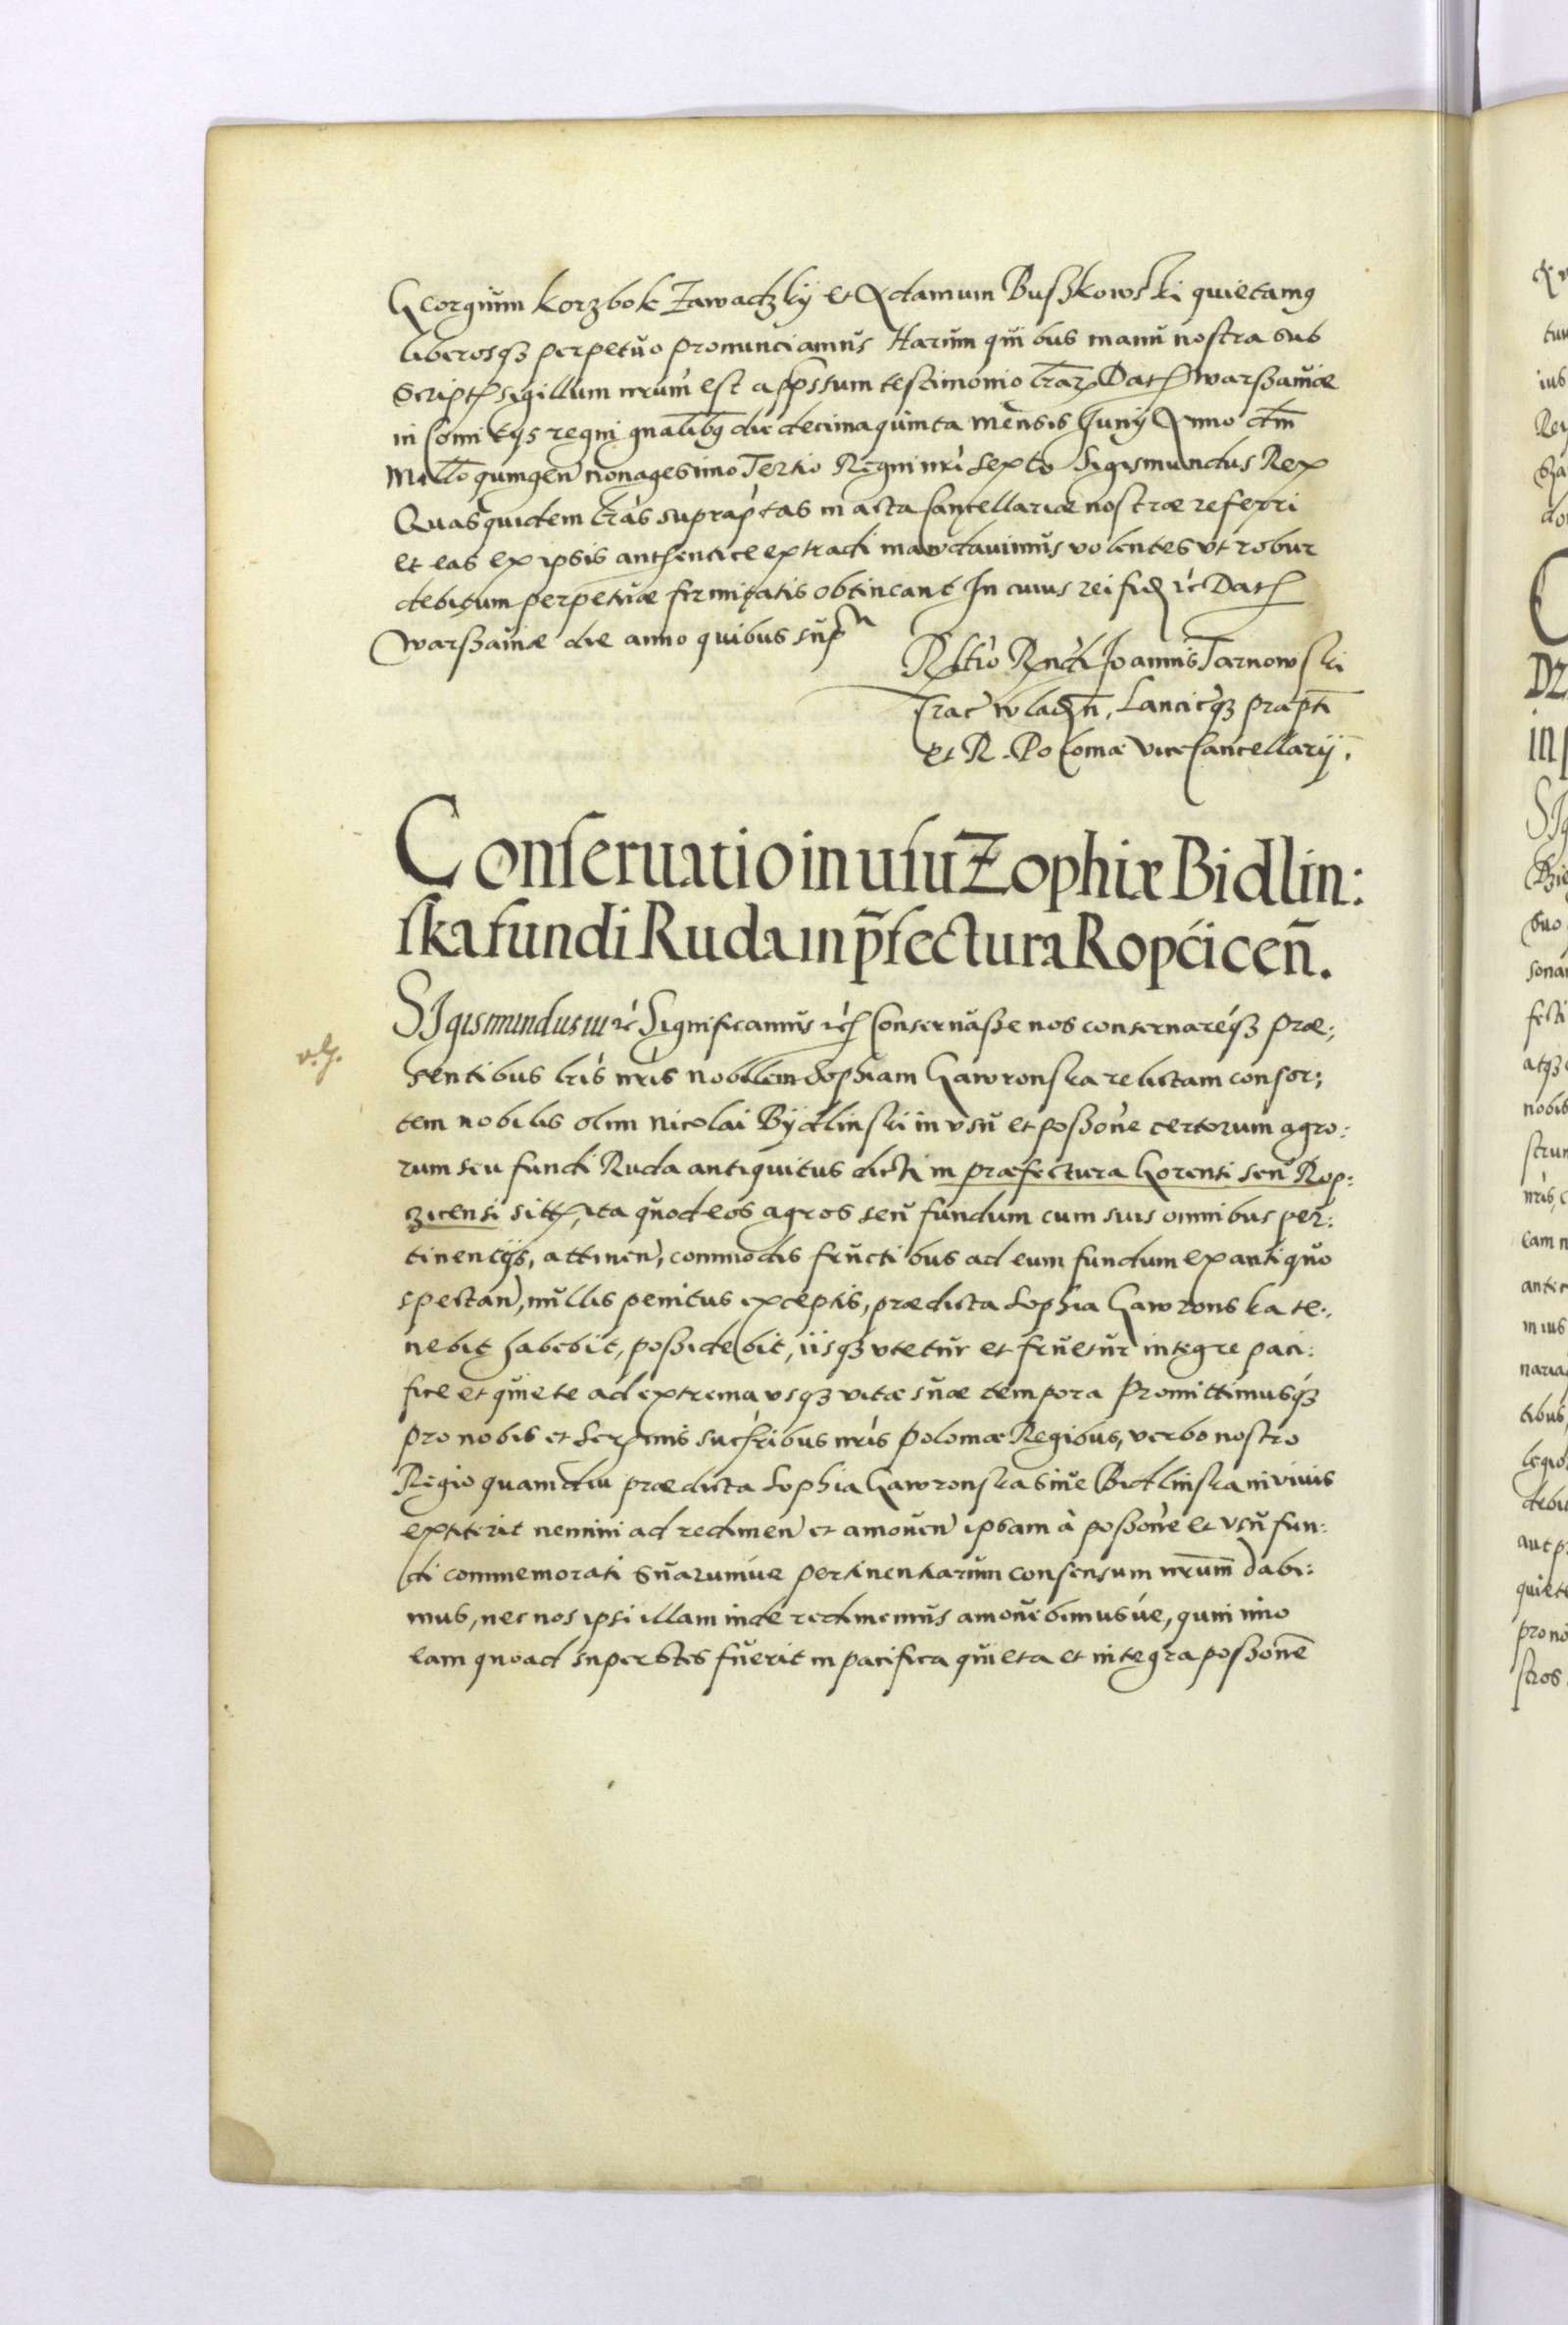 Georgium Korzbok Zawadzkÿ et Adamum Bußkowski quietamq
liberosqꝫ perpetuo pronunciamus Harum quibus manu nostra sub
script sigillum nrum est appssum testimonio lrarꝫ Dat Warßauiæ
in Comitÿs regni gnalibꝫ die decima quinta Mensis Junÿ Anno dm̃
Millo quingen nonagesimo Tertio Regni nri sexto Sigismundus Rex
Quas quidem lrás supraptas in acta Cancellariæ nostræ referri
et eas ex ipsis authentice extradi mandauimus volentes vt robur
debitum perpetuæ firmitatis obtineant In cuius rei fidẽ ꝛc̀ Dat
Warßauiæ die anno quibus supra
Rltio Rndi Joannis Tarnowski
Crac Wladẽn, Lancicqꝫ præpti
et R. Poloniæ ViceCancellarÿ.
Conseruatio in usu Zophiæ Bidlin:
ska fundi Ruda in p̃fectura Ropcicen̄.
SJgismundus III ꝛc̀ Significamus ꝛc̀ Conseruaße nos conseruareqꝫ præ:
sentibus lris nris nobilem Sophiam Gawronska relictam consor:
tem nobilis olim Nicolai Bÿdlinski in vsu et poßone certorum agro:
rum seu fundi Ruda antiquitus dicti in præfectura Gorensi seu Rop:
zicensi sitt, ita quod eos agros seu fundum cum suis omnibus per:
tinentÿs, attinen, commodis fructibus ad eum fundum ex antiquo
spectan, nullis penitus exceptis, prædicta Sophia Gawronska te:
nebit habebit, poßidebit, iisqꝫ vtetur et fruetur integre paci:
fice et quiete ad extrema vsqꝫ vitæ suæ tempora Promittimusqꝫ
pro nobis et Sermis sucribus nris Poloniæ Regibus, verbo nostro
Regio quamdiu prædicta Sophia Gawronska siue Bidlinska in viuis
extiterit nemini ad redimen et amouen ipsam à poßone et vsu fun:
di commemorati suarumue pertinentiarum consensum nrum̄ dabi:
mus, nec nos ipsi illam inde redimemus amouebimusue, quin imo
eam quoad superstes fuerit in pacifica quieta et integra poßonē